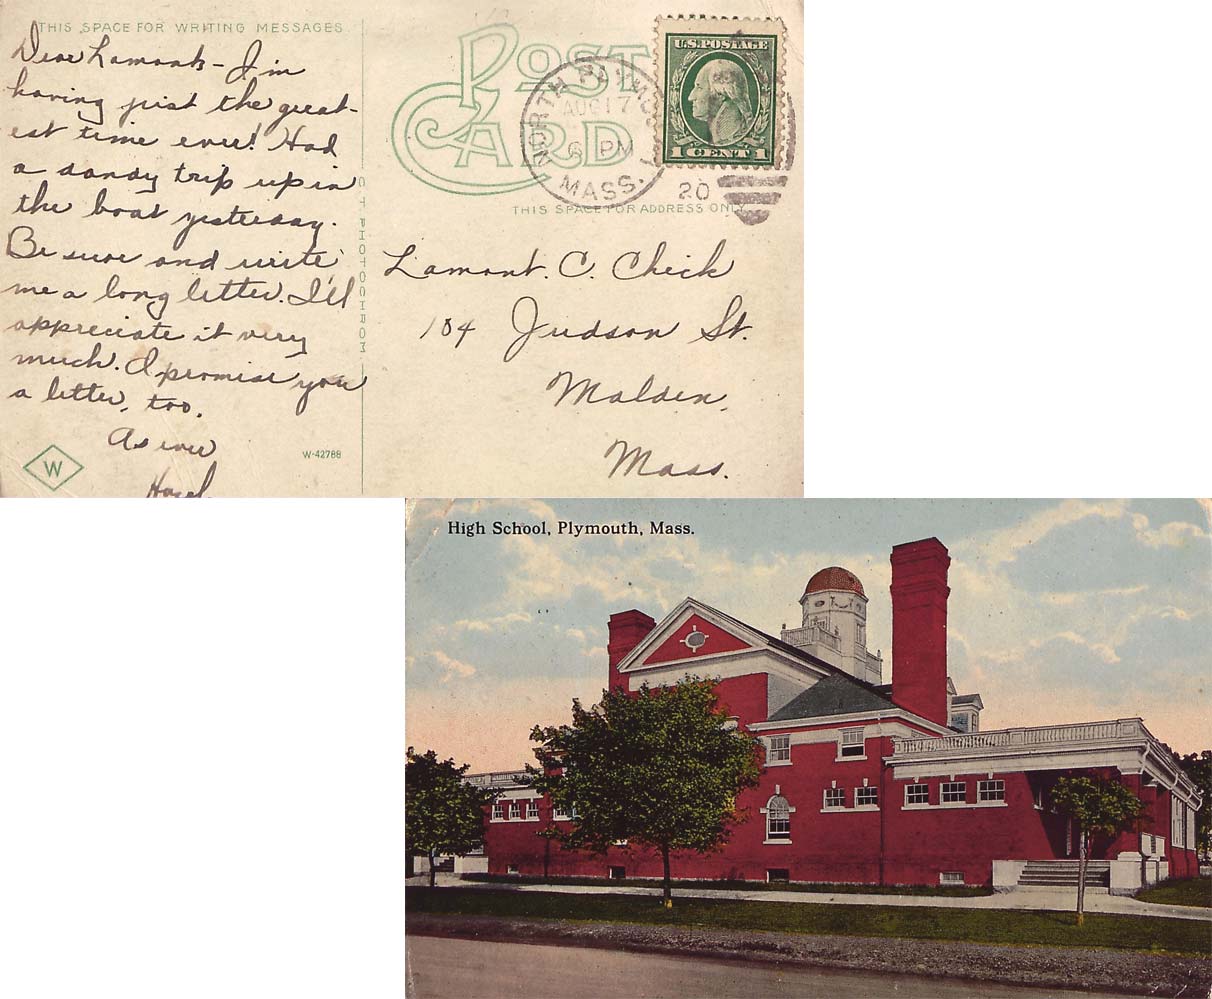 THIS SPACE FOR WRITING MESSAGES
Dear Lamont - I'm
having just the great-
est time ever! Had
a dandy trip up in
the boat yesterday.
Be sure and write
me a long letter. I'll
appreciate it very
much. I promise you
a letter, too.
As ever
Hazel
W
W-42788
POST
CARD
NORTH PLYMO
AUG 17
6 PM
MASS.
20
U.S. POSTAGE
1 CENT 1
THIS SPACE FOR ADDRESS ONLY
PHOTOCHROM
Lamont. C. Chick
104 Judson St.
Malden,
Mass.
High School, Plymouth, Mass.